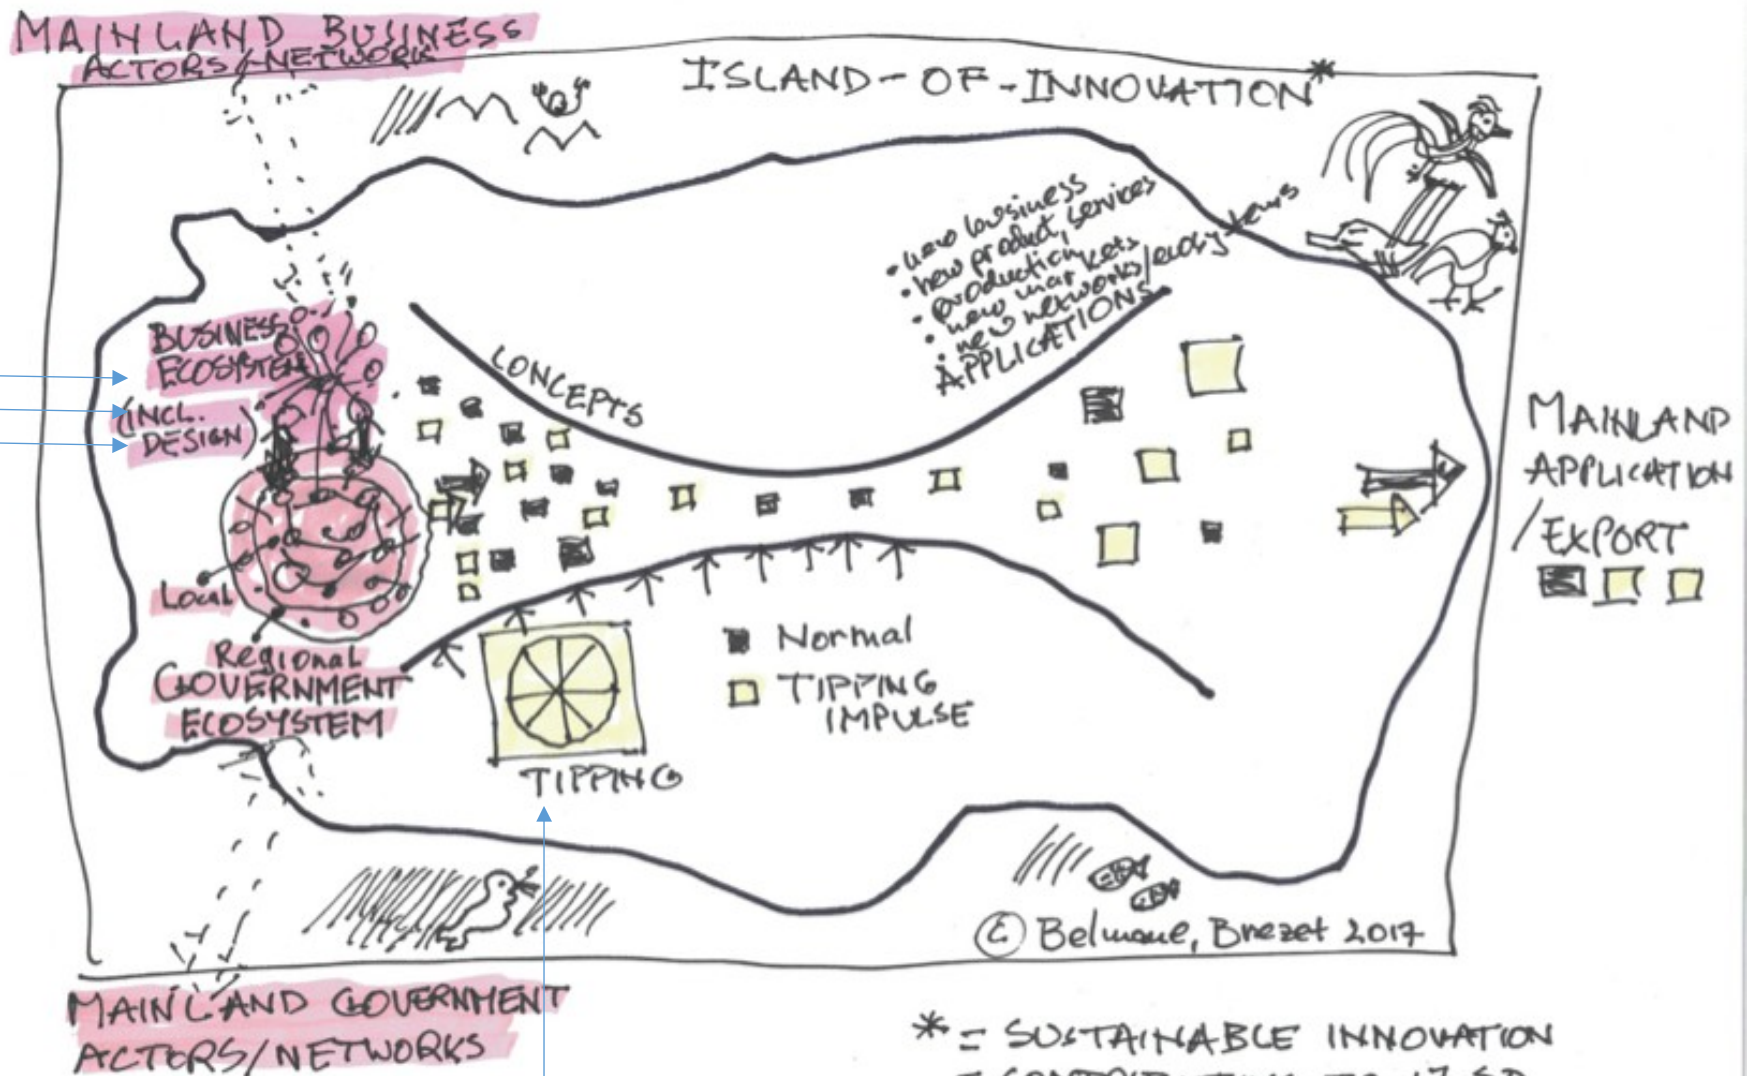 MAINLAND BUSINESS
ACTORS/NETWORK
ISLAND-OF-INNOVATION*
• new business
• new product, services
• production
• new markets
• new networks/ecosystems
APPLICATIONS
CONCEPTS
BUSINESS
ECOSYSTEM
(INCL.
DESIGN)
Local
Regional
GOVERNMENT
ECOSYSTEM
Normal
TIPPING
IMPULSE
TIPPING
MAINLAND
APPLICATION
/EXPORT
© Brezet 2017
MAINLAND GOVERNMENT
ACTORS/NETWORKS
* = SUSTAINABLE INNOVATION